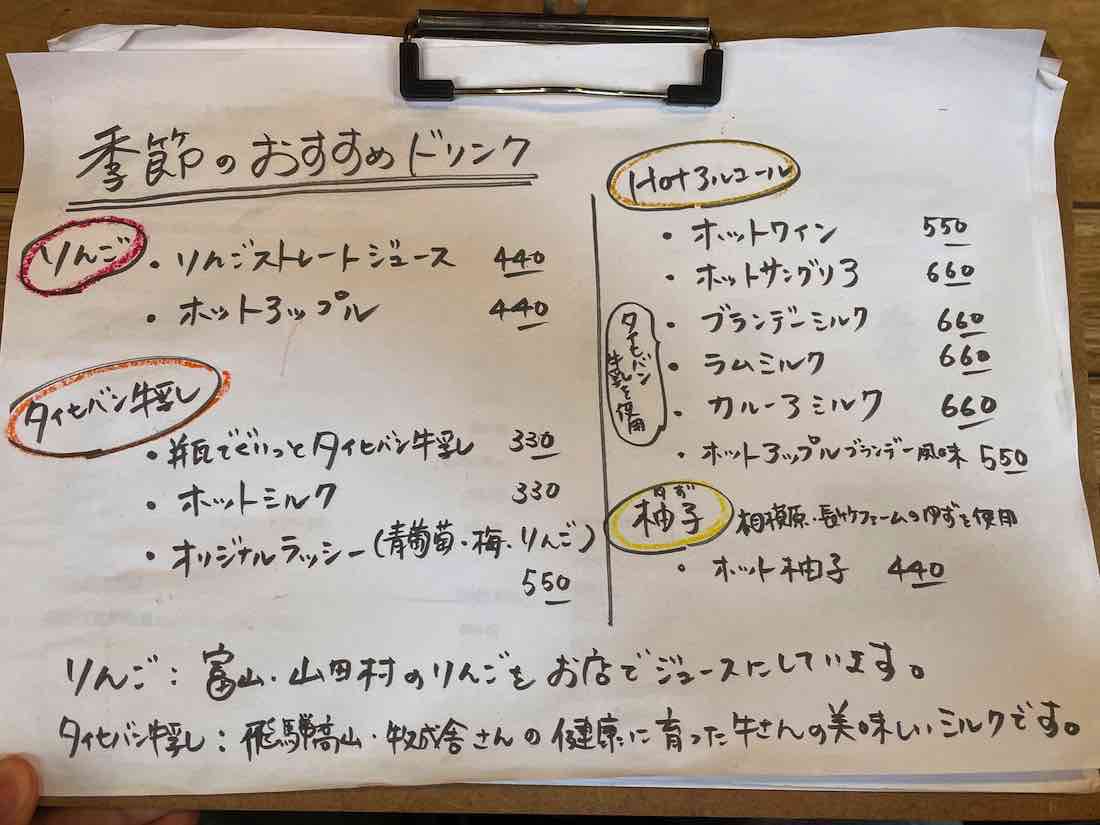 季節のおすすめドリンク
りんご
・りんごストレートジュース 440
・ホットアップル 440
タイセバン牛乳
・瓶でぐいっとタイセバン牛乳 330
・ホットミルク 330
・オリジナルラッシー(青葡萄・梅・りんご)
550
Hotアルコール
・ホットワイン 550
・ホットサングリア 660
タイセバン牛乳を使用
・ブランデーミルク 660
・ラムミルク 660
・カルーアミルク 660
・ホットアップルブランデー風味 550
ゆず
柚子 相模原・長竹ファームのゆずを使用
・ホット柚子 440
りんご：富山・山田村のりんごをお店でジュースにしています。
タイセバン牛乳：飛騨高山・牧成舎さんの健康に育った牛さんの美味しいミルクです。